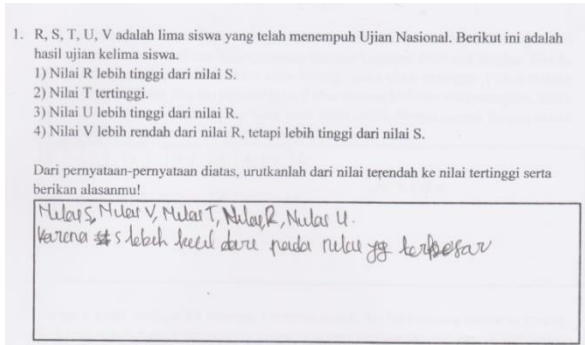 1. R, S, T, U, V adalah lima siswa yang telah menempuh Ujian Nasional. Berikut ini adalah
hasil ujian kelima siswa.
1) Nilai R lebih tinggi dari nilai S.
2) Nilai T tertinggi.
3) Nilai U lebih tinggi dari nilai R.
4) Nilai V lebih rendah dari nilai R, tetapi lebih tinggi dari nilai S.
Dari pernyataan-pernyataan diatas, urutkanlah dari nilai terendah ke nilai tertinggi serta
berikan alasanmu!
Nilai S, Nilai V, Nilai T, Nilai R, Nilai U.
Karena S lebih kecil dari pada nilai yg terbesar